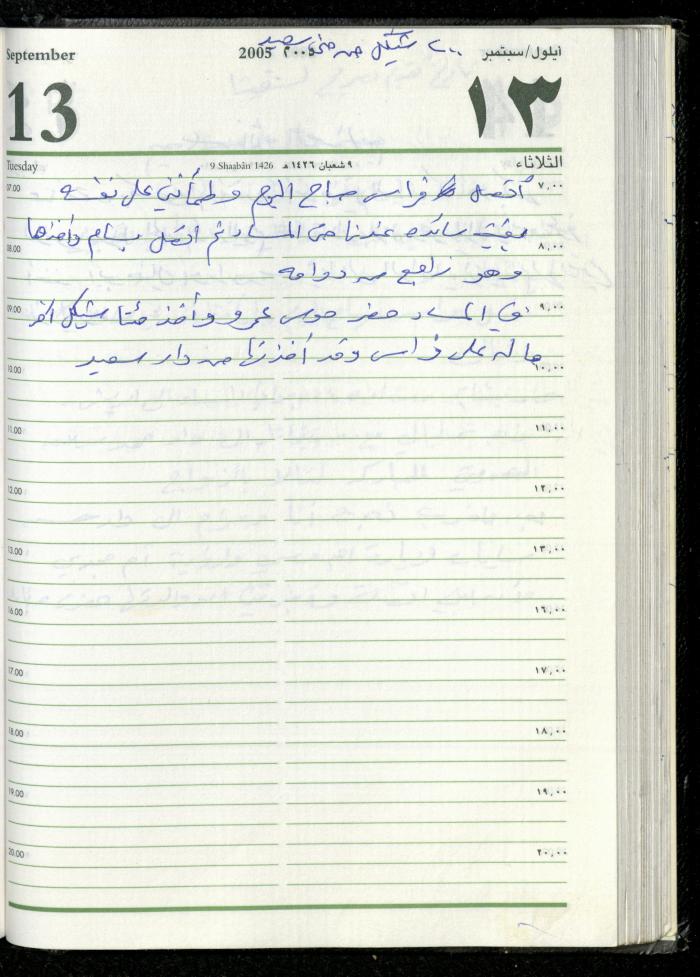 ٢٠٠ شيكل من منى سعيد
September 2005 ٢٠٠٥ ايلول/سبتمبر
13 ١٣
Tuesday 9 Shaabân 1426 ٩ شعبان ١٤٢٦ هـ الثلاثاء
07.00 أتصل فراس صباح اليوم وطمأنني على نفسه ٧,٠٠
بقيت سائده عندنا حتى المساء ثم اتصل بسام وأخذها
08.00 وهو راجع من دوامه ٨,٠٠
09.00 في المساء حضر موسى عمرو وأخذ مئتا شيكل آخر ٩,٠٠
ما له على فراس وقد أخذتها من دار سعيد
10.00 ١٠,٠٠
11.00 ١١,٠٠
12.00 ١٢,٠٠
13.00 ١٣,٠٠
16.00 ١٦,٠٠
17.00 ١٧,٠٠
18.00 ١٨,٠٠
19.00 ١٩,٠٠
20.00 ٢٠,٠٠